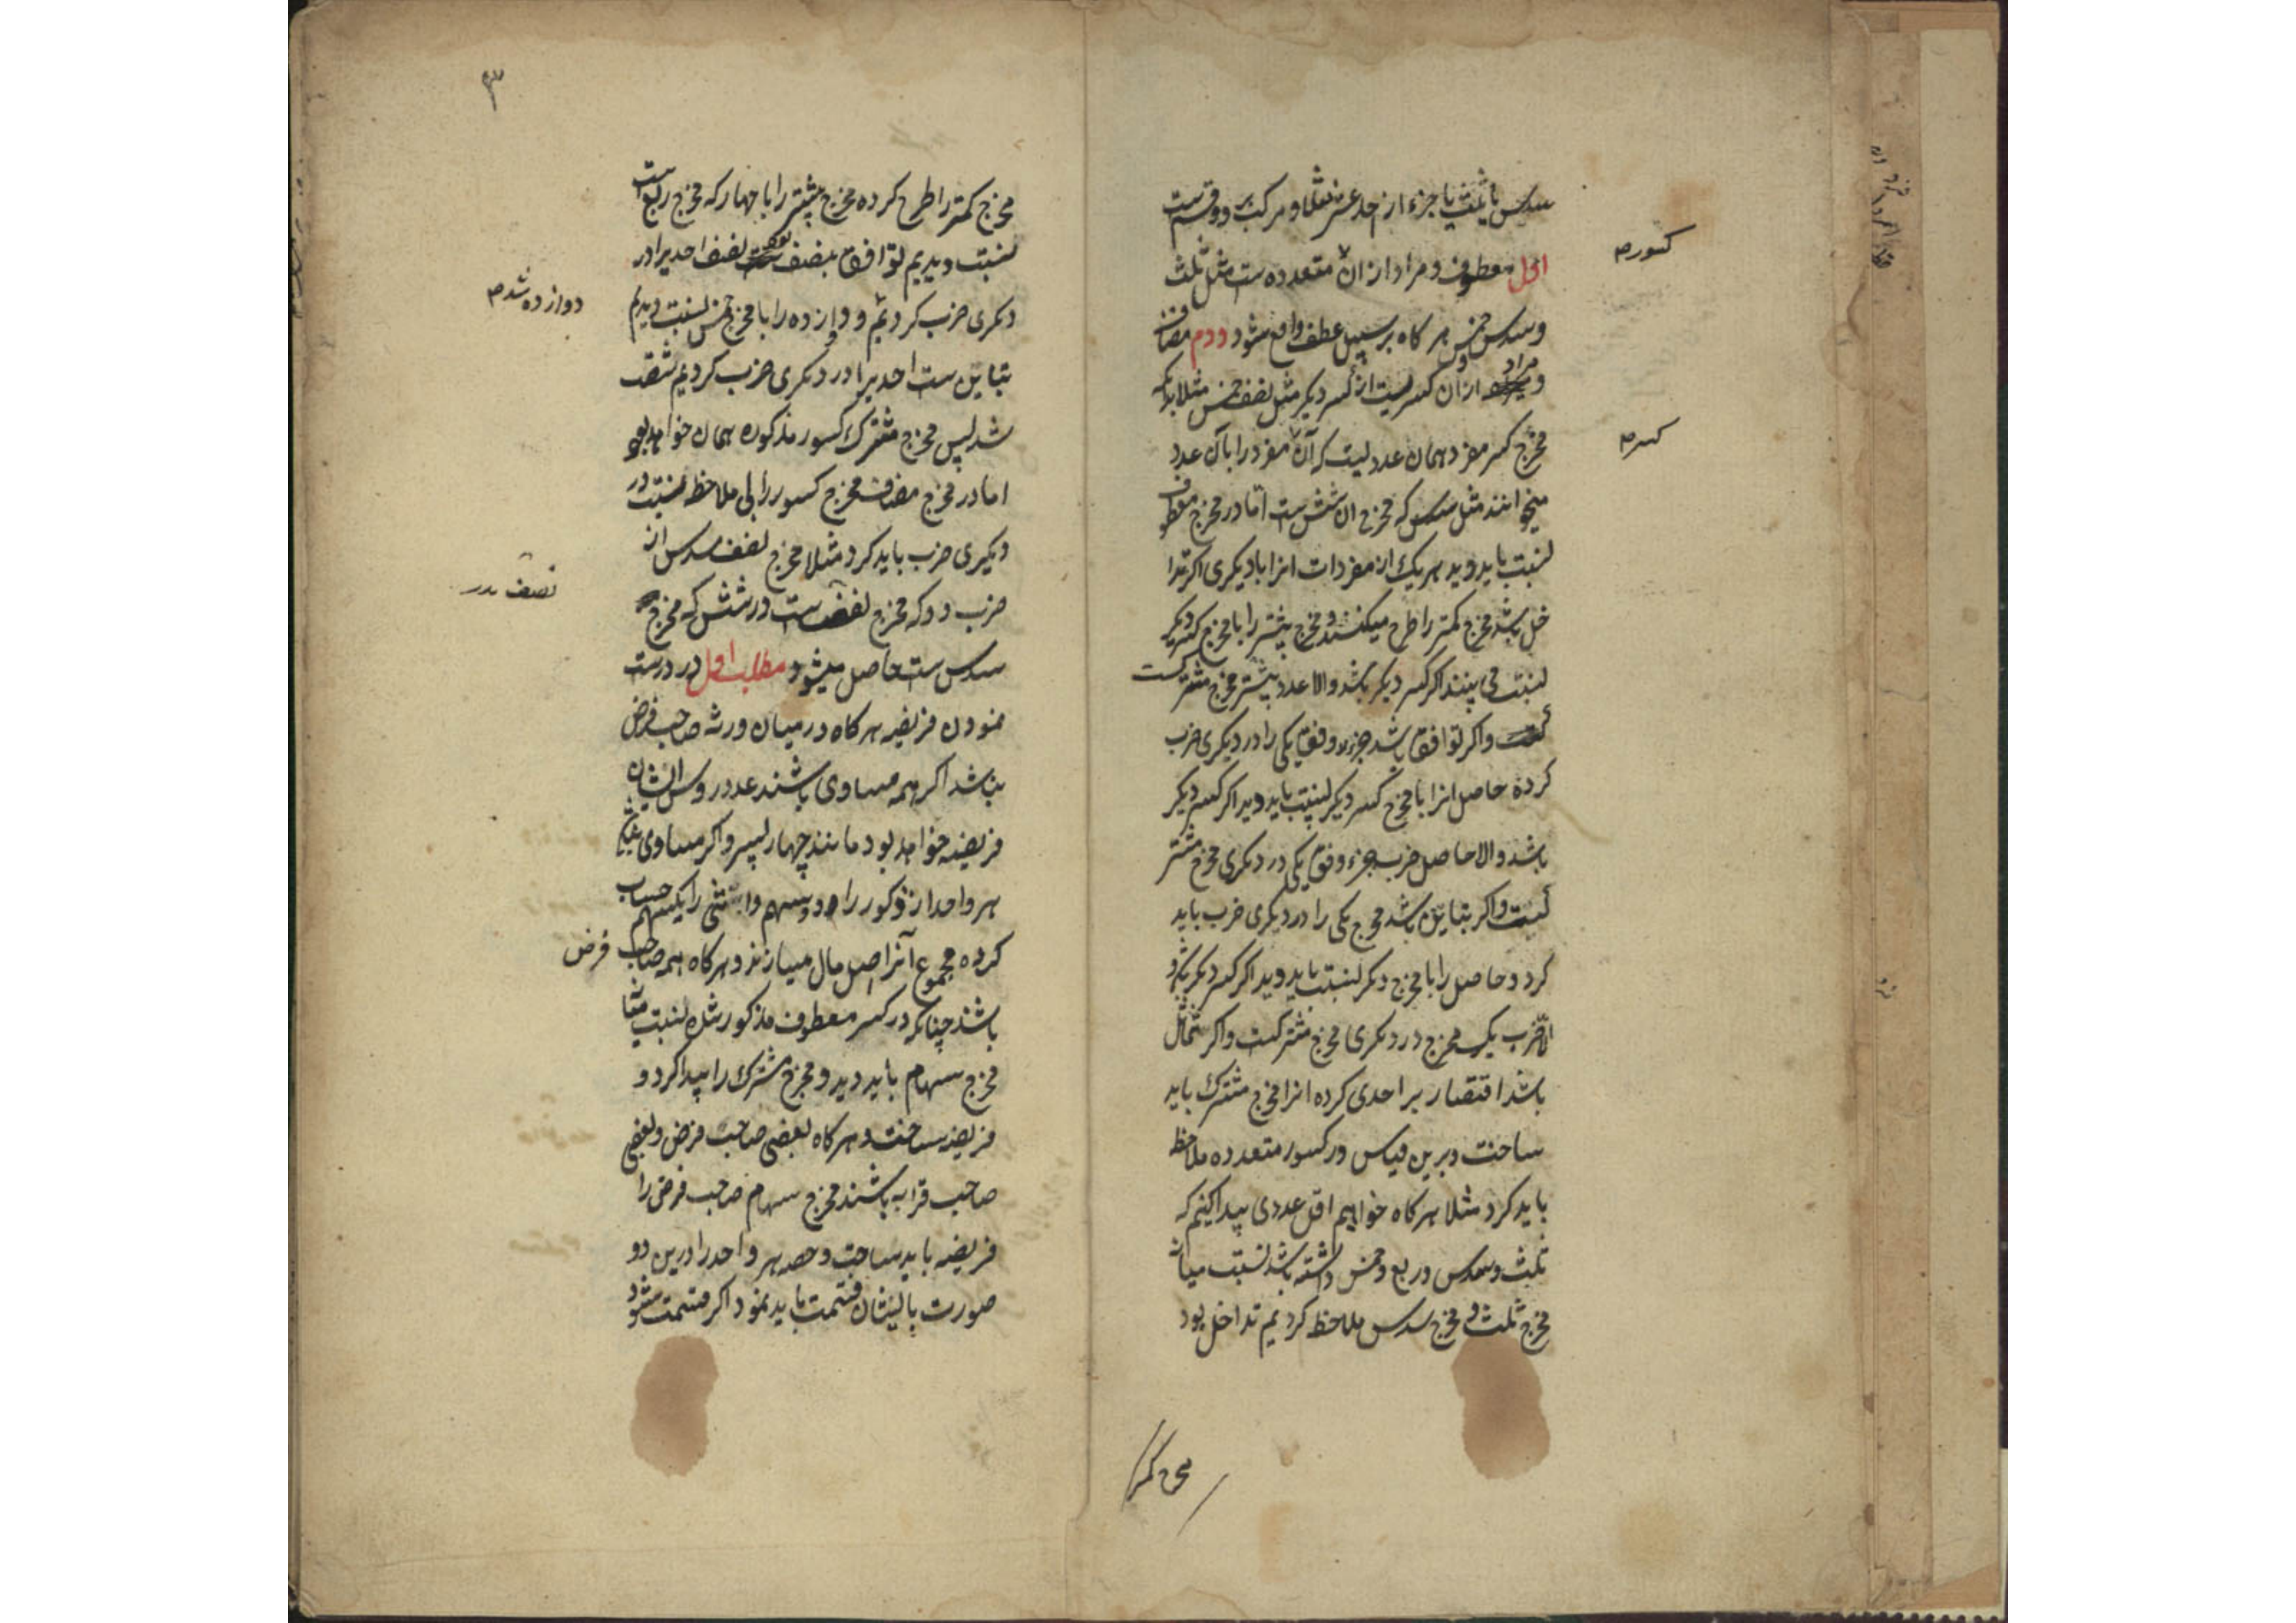 سدس یا ثلث یا جزء از احد عشر مثلا و مرکب بر دو قسم ست
کسور
اول معطوف و مراد از ان متعدده ست مثل ثلث
و سدس و خمس هر کاه بر سبیل عطف واقع شود دوم مضاف
و مراد از ان کسریست از کسر دیکر مثل نصف خمس مثلا
کسر
مخرج کسر مفرد همان عددیست که آن مفرد را با آن عدد
میخوانند مثل سدس که مخرج ان شش ست اما در مخرج معطوف
نسبت باید دید هر یک از مفردات انرا با دیکری اکر تدا
خل باشد مخرج کمتر را طرح میکنند و مخرج بیشتر را با مخرج کسر دیکر
نسبت می بینند اکر کسر دیکر باشد والا عدد بیشتر مخرج مشترکست
واکر توافق باشد جزء وفق یکی را در دیکری ضرب
کرده حاصل انرا با مخرج کسر دیکر نسبت باید دید اکر کسر دیکر
باشد والا حاصل ضرب جزء وفق یکی در دیکری مخرج مشتر
کست واکر تباین باشد مخرج یکی را در دیکری ضرب باید
کرد و حاصل را با مخرج دیکر نسبت باید دید اکر کسر دیکر باشد و
الا ضرب یک مخرج در دیکری مخرج مشترکست واکر تماثل
باشد اقتصار بر احدی کرده انرا مخرج مشترک باید
ساخت و برین قیاس در کسور متعدده ملاحظه
باید کرد مثلا هر کاه خواهیم اقل عددی پیدا کنیم که
ثلث و سدس و ربع و خمس داشته باشد نسبت میان
مخرج ثلث و مخرج سدس ملاحظه کردیم تداخل بود
مخرج کمتر
۳
مخرج کمتر را طرح کرده مخرج بیشتر را با چهار که مخرج ربع است
نسبت دیدیم توافق بنصف بود نصف احدیرا در
دوازده شد
دیکری ضرب کردیم و دوازده را با مخرج خمس نسبت دیدیم
تباین ست احدیرا در دیکری ضرب کردیم شصت
شد پس مخرج مشترک کسور مذکوره همان خواهد بود
اما در مخرج مضاف مخرج کسور را بی ملاحظه نسبت در
دیکری ضرب باید کرد مثلا مخرج نصف سدس از
نصف
ضرب دو که مخرج نصف ست در شش که مخرج
سدس ست حاصل میشود مطلب اول در درست
نمودن فریضه هر کاه در میان ورثه صاحب فرض
نباشد اکر همه مساوی باشند عدد روس ایشان
فریضه خواهد بود مانند چهار پسر واکر مساوی نباشند
هر واحد از ذکور را دو سهم و انثی را یکسهم حساب
کرده مجموع آنرا اصل مال میسازند و هر کاه همه صاحب فرض
باشند چنانکه در کسر معطوف مذکور شد نسبت میان
مخرج سهام باید دید و مخرج مشترک را پیدا کرد و
فریضه ساخت و هر کاه بعضی صاحب فرض و بعضی
صاحب قرابه باشند مخرج سهام صاحب فرض را
فریضه باید ساخت و حصه هر واحد را درین دو
صورت بایشان قسمت باید نمود اکر قسمت شود